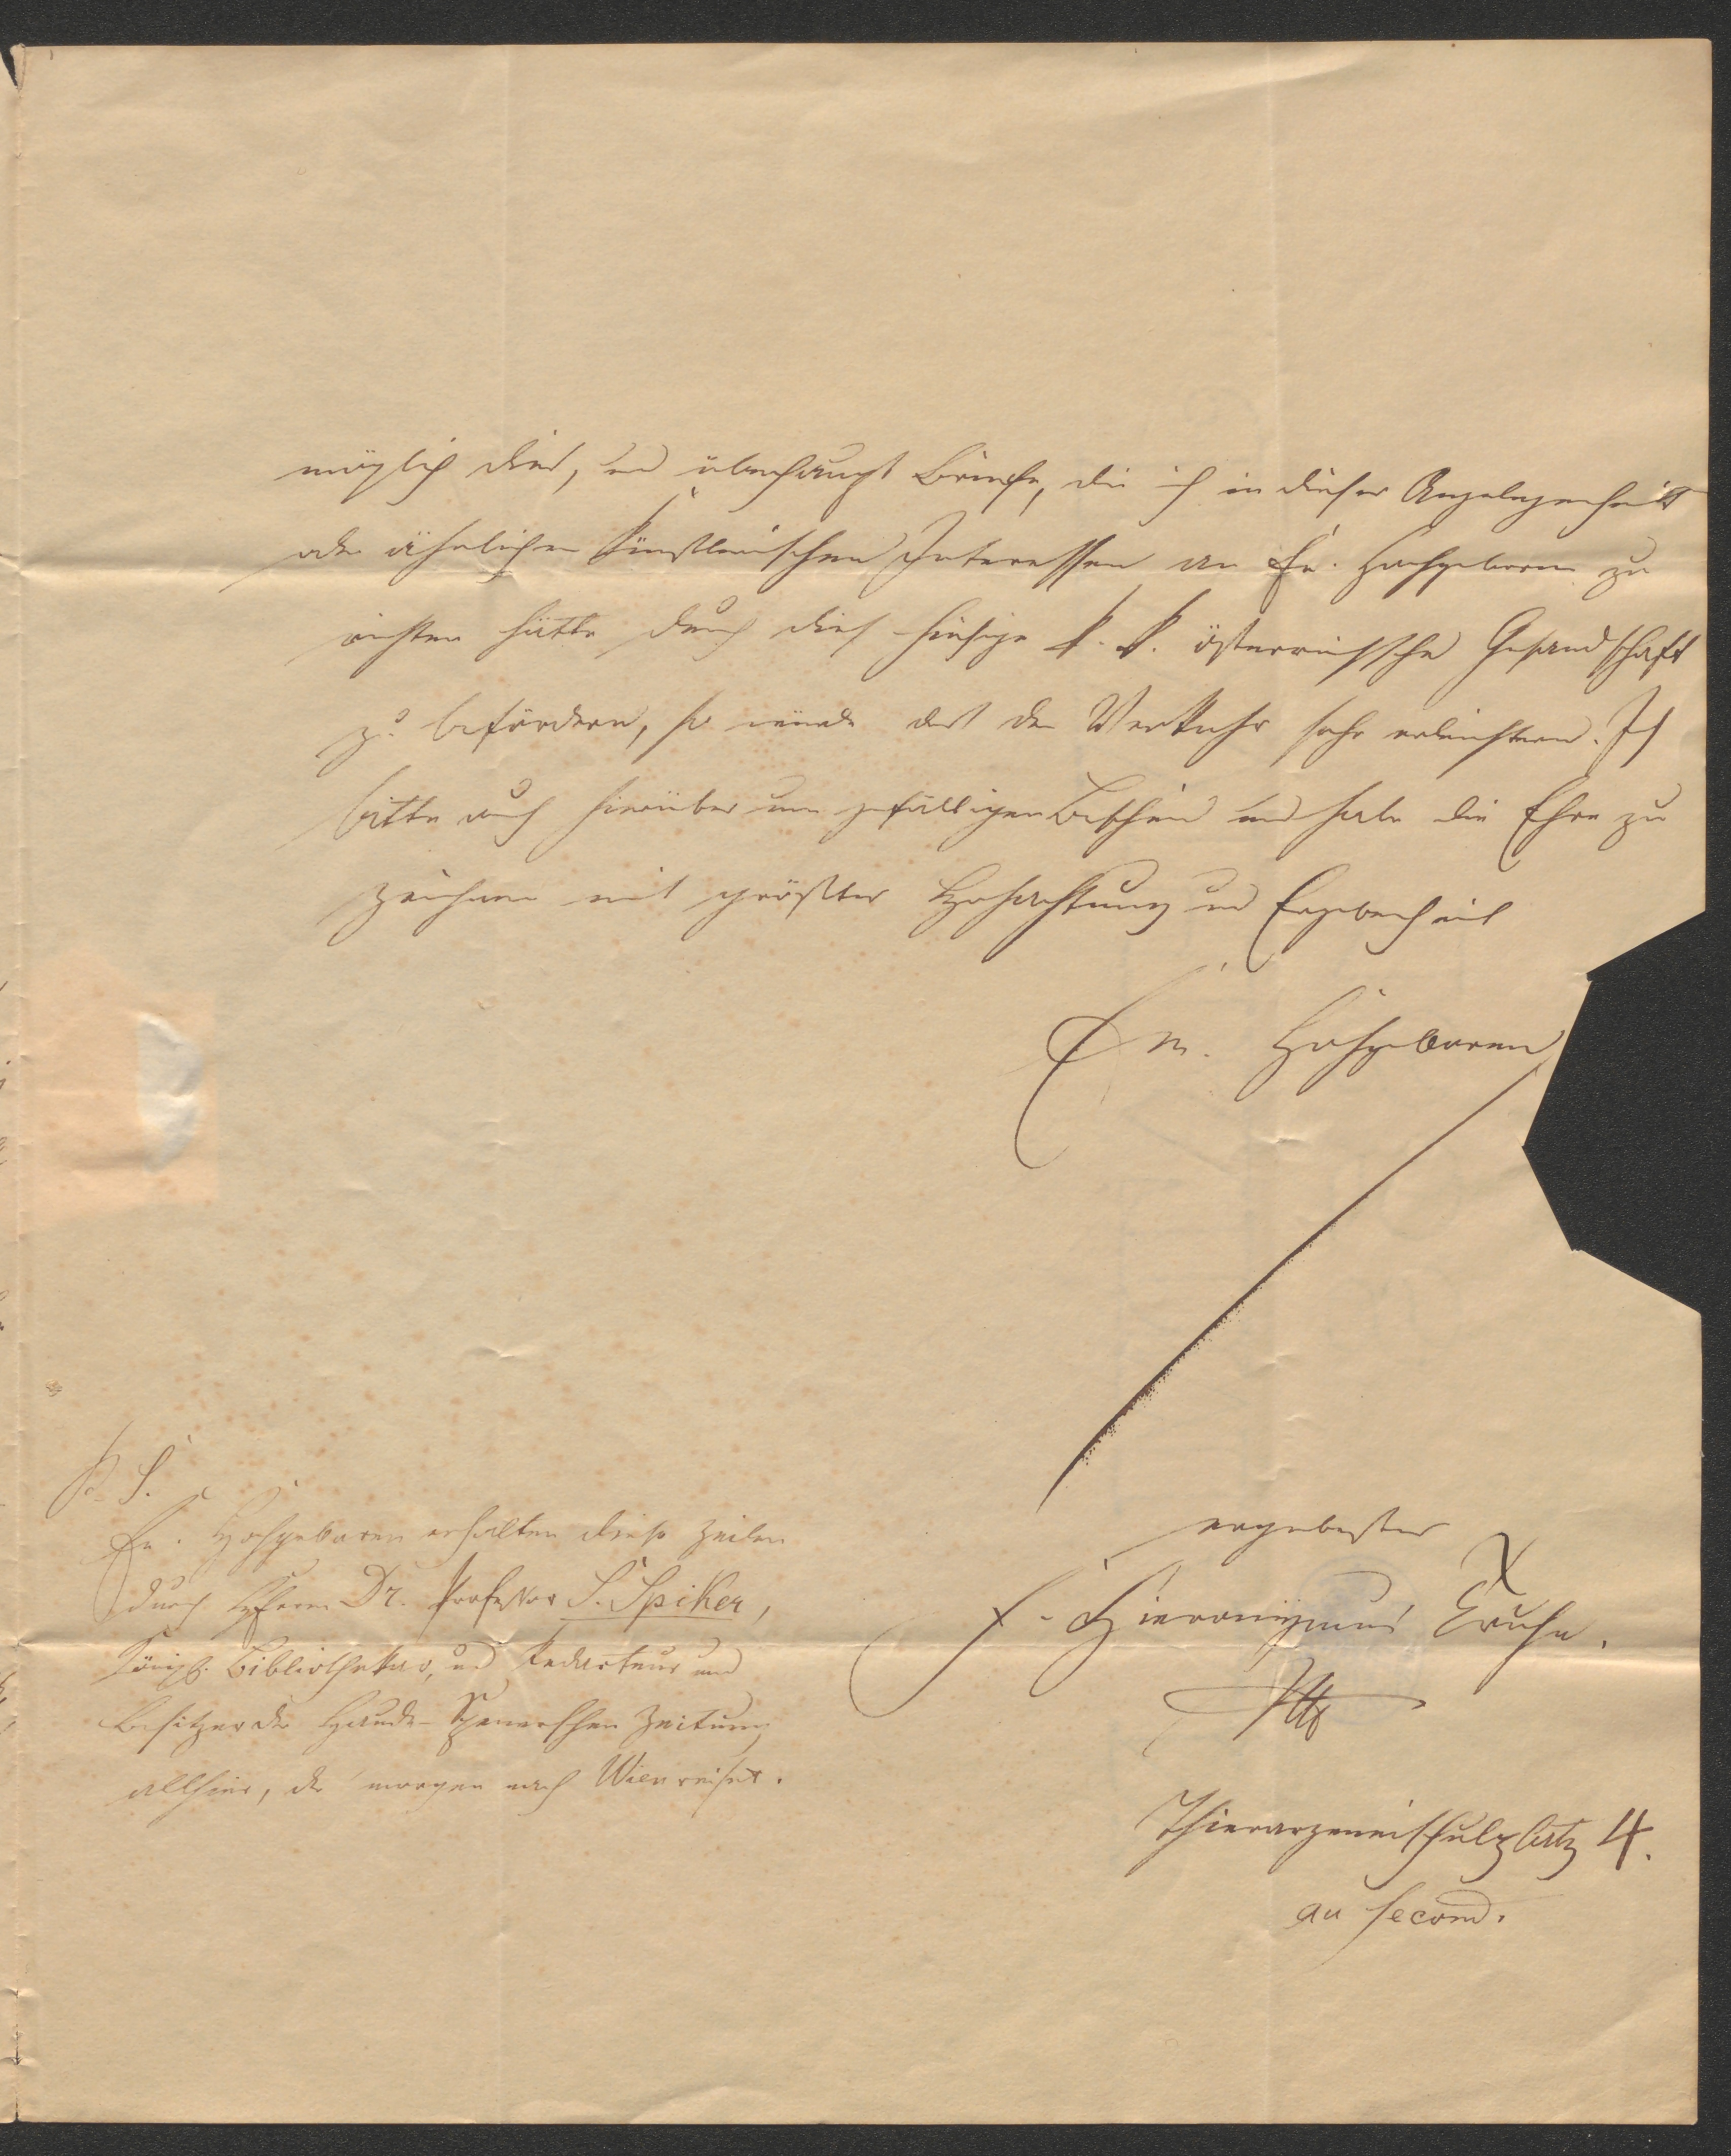 möglich dies, und überhaupt Briefe, die ich in dieser Angelegenheit
oder ähnlichen künstlerischen Interessen an Ew. Hochgeboren zu
richten hätte durch dies hiesige k. k. österreichsche Gesandschaft
zu befördern, so würde das den Verkehr sehr erleichtern. Ich
bitte auch hierüber um gefälligen Bescheid und habe die Ehre zu
zeichnen mit größter Hochachtung und Ergebenheit
Ew. Hochgeboren
ergebenster
f. Hieronymus Truhn.
Thierarzeneischulplatz 4.
au second.
P. S.
Ew. Hochgeboren erhalten diese Zeilen
durch Herrn Dr. Professor S. Spiker,
Königl. Bibliothekar, und Redacteur und
Besitzer der Haude-Spenerschen Zeitung
allhier, der morgen nach Wien reiset.